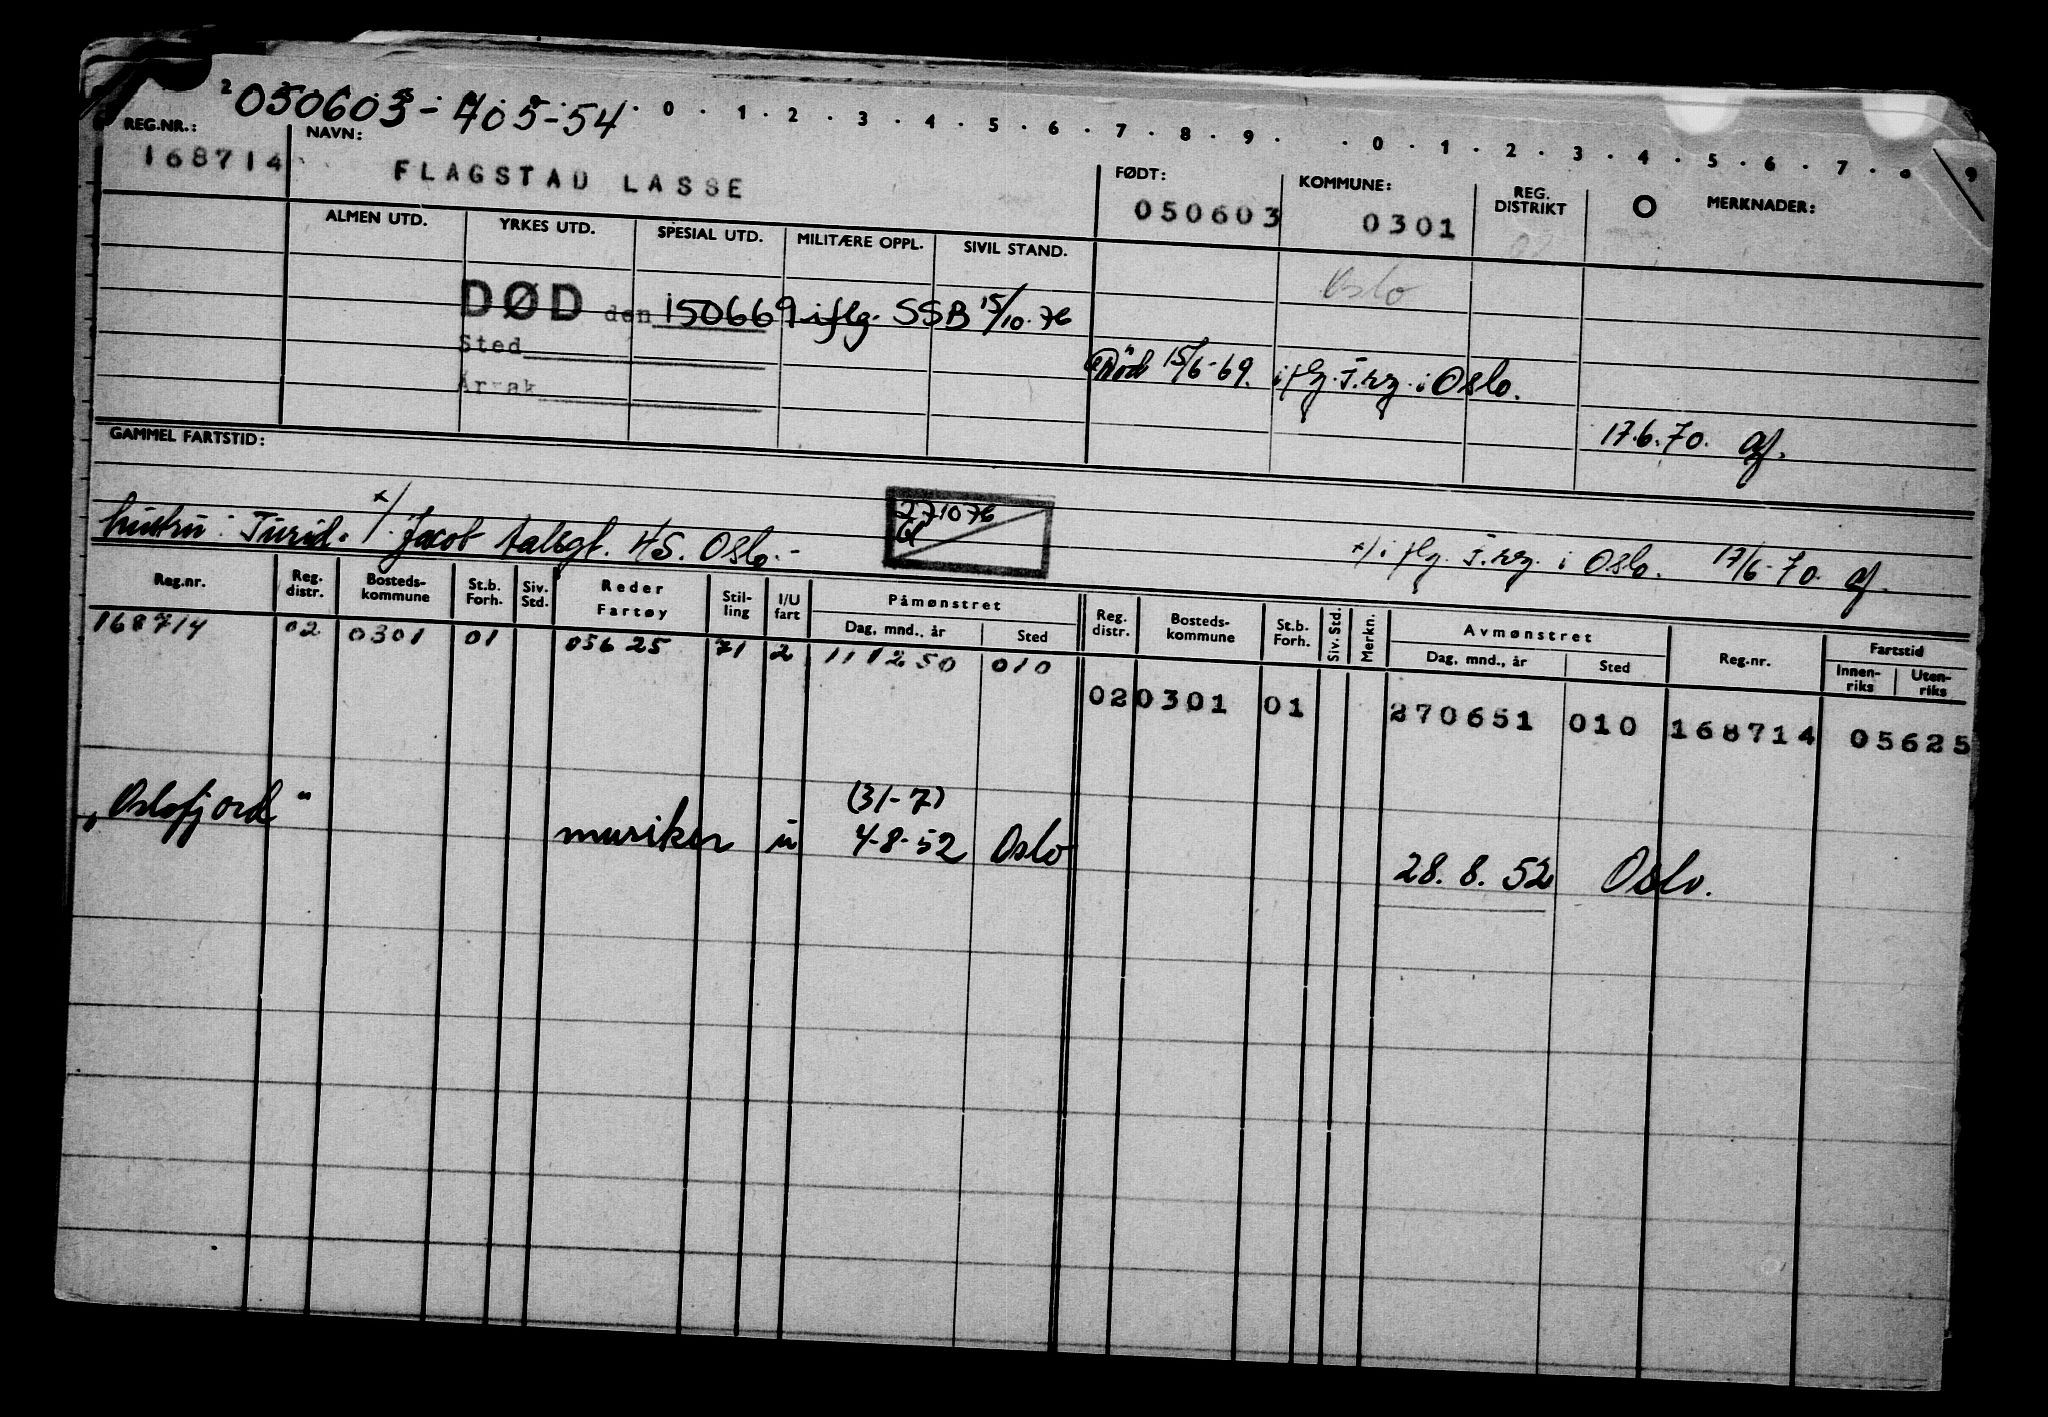 2 050603-405-54 . 0 . 1 . 2 . 3 . 4 . 5 . 6 . 7 . 8 . 9 . . 0 . 1 . 2 . 3 . 4 . 5 . 6 . 7 . 8 9
REG.NR.: NAVN:
168714 FLAGSTAD LASSE
FØDT: KOMMUNE: REG. DISTRIKT O MERKNADER:
050603 0301
ALMEN UTD. YRKES UTD. SPESIAL UTD. MILITÆRE OPPL. SIVIL STAND.
Oslo
DØD den 150669 iflg. SSB 15/10.76
Sted
Årsak
Død 15/6-69. iflg. T.rg. i Oslo.
17.6.70. af.
GAMMEL FARTSTID:
271076
hustru: Turid. x/ Jacob Aalsgt. 45. Oslo.-
x/ iflg. T.rg. i Oslo. 17/6-70. af.
Reg.nr. Reg. distr. Bosteds-kommune St.b. Forh. Siv. Std. Reder Fartøy Stil-ling I/U fart Påmønstret Dag, mnd., år Sted Reg. distr. Bosteds-kommune St.b. Forh. Siv. Std. Merkn. Avmønstret Dag, mnd., år Sted Reg.nr. Fartstid Innen-riks Uten-riks
168714 02 0301 01 05625 71 2 111250 010
02 0301 01 270651 010 168714 05625
(31-7)
„Oslofjord" musiker u 4-8-52 Oslo
28.8.52 Oslo.